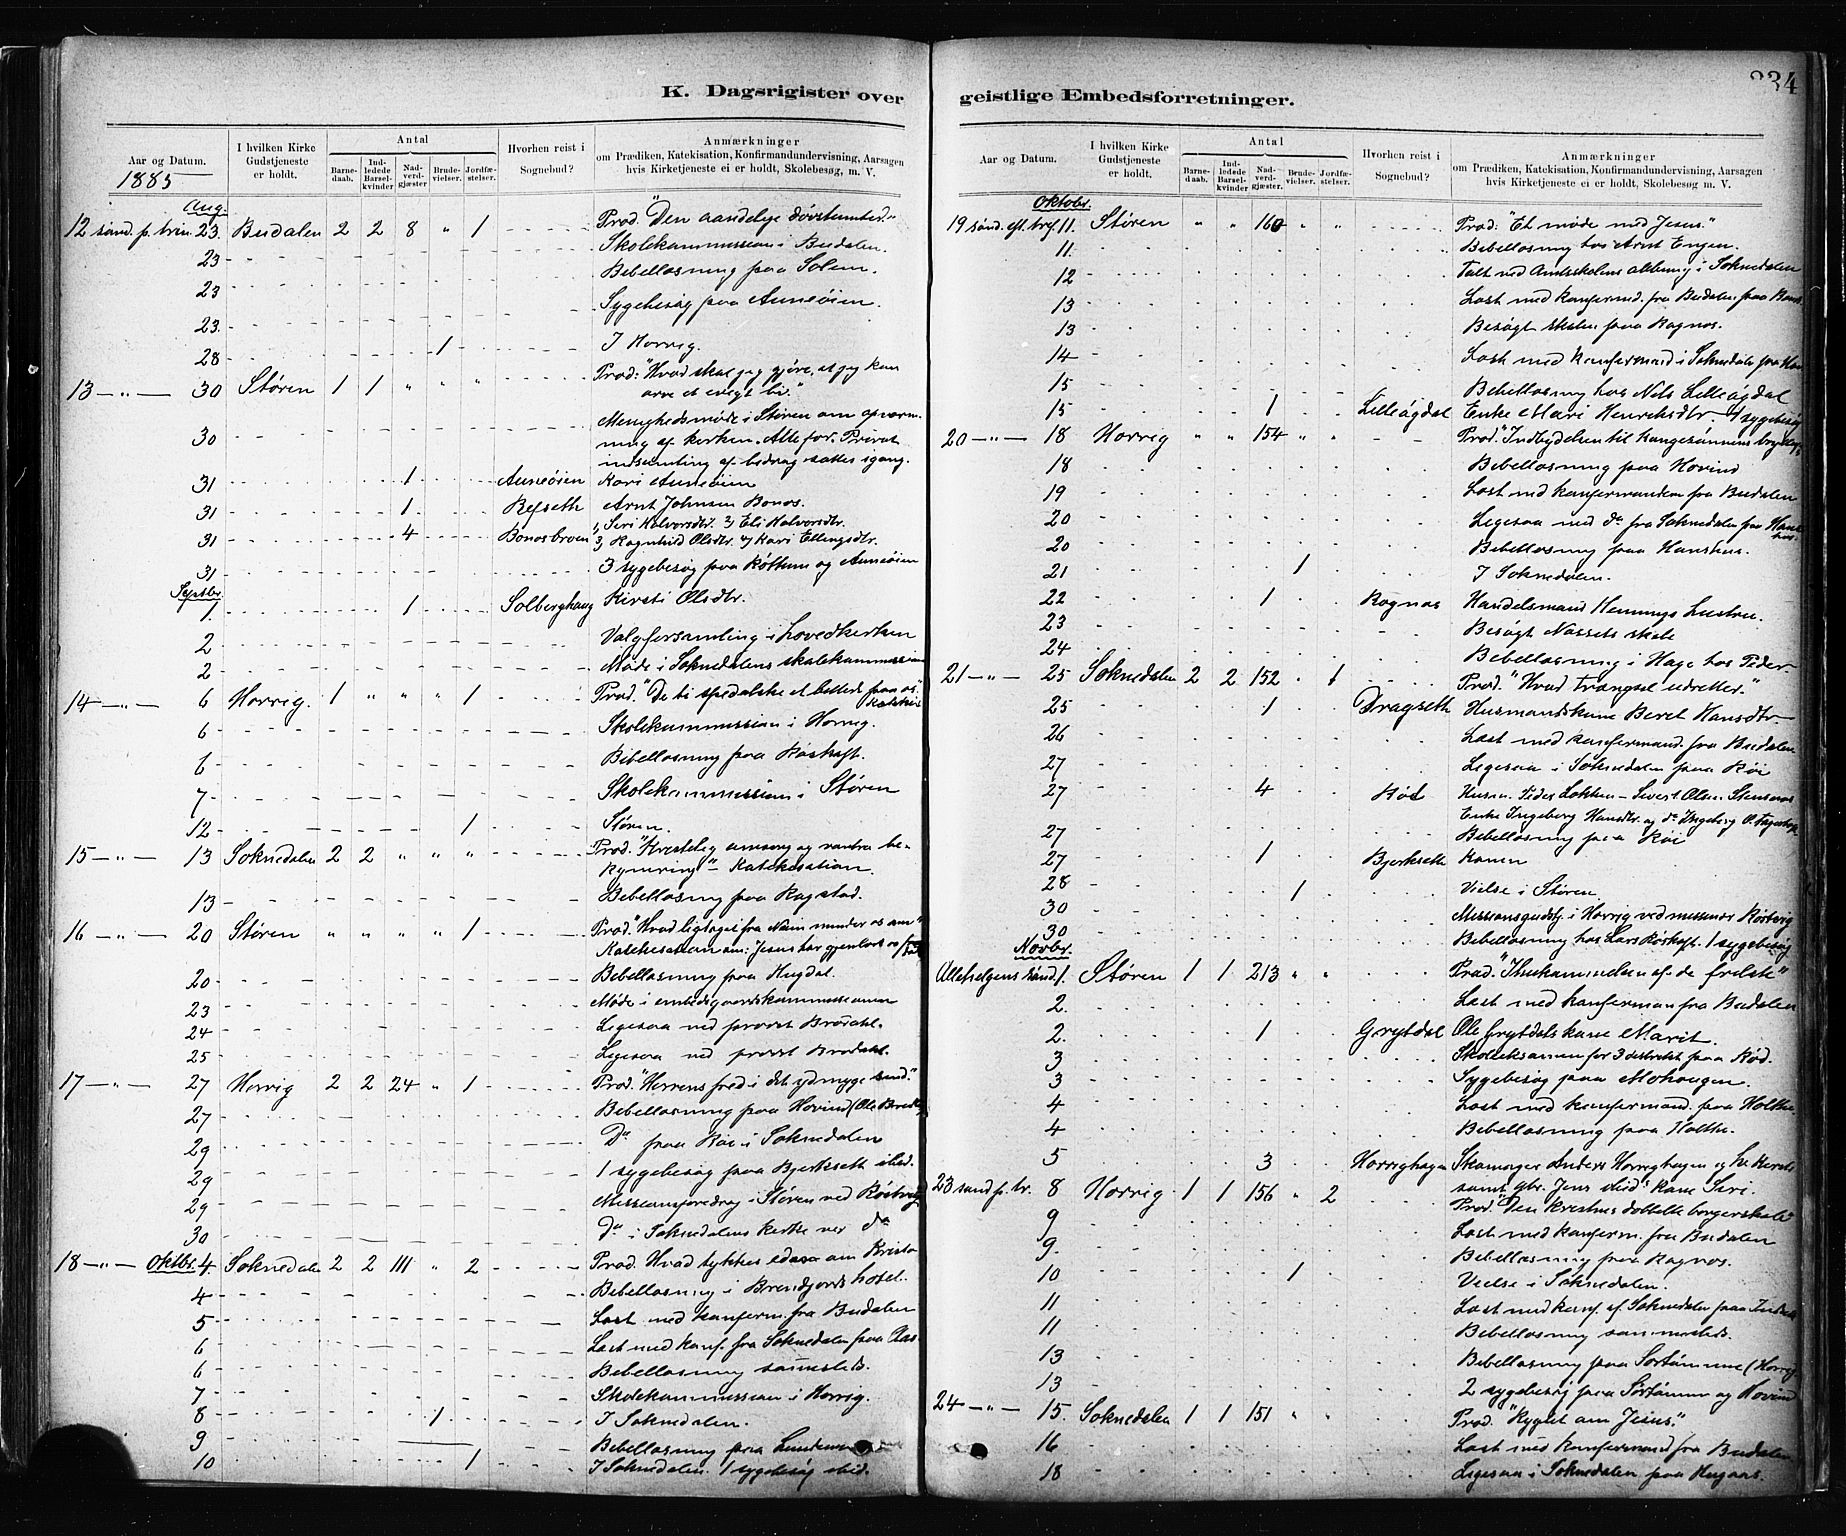 K. Dagsrigister over
Aar og Datum. 1885
I hvilken Kirke Gudstjeneste er holdt.
Antal
Barnedaab. Indledede Barselkvinder Nadverdgjæster Brudevielser. Jordfæstelser.
Hvorhen reist i Sognebud?
Anmærkninger
om Prædiken, Katekisation, Konfirmandundervisning, Aarsagen
hvis Kirketjeneste ei er holdt, Skolebesøg, m. V.
Aug.
12 sønd. p. trin. 23. Budalen 2 2 8 " 1 Præd. "Den aandelige døvstumhed."
23 Skolekommission i Budalen.
23 Bibellæsning paa Solem.
23. Sygebesøg paa Auneøien.
28 1 I Horrig.
13 —"— 30 Støren 1 1 " " " Præd: "Hvad skal jeg gjøre, at jeg kan
arve et evigt liv."
30 Menighedsmøde i Støren om opvarm-
ning af kirken. Alle for. Privat
indsamling af bidrag sættes igang.
31 1 Auneøien Kari Auneøien
31 1 Refseth Arnt Johnsen Bonos.
31 4 Bonosbroen 1) Siri Halvorsdtr. 2) Eli Halvorsdtr.
3) Ragnhild Olsdtr. 4) Kari Ellingsdtr.
31 3 sygebesøg paa Røttum og Auneøien
Septbr.
1. 1 Solberghaug Kirsti Olsdtr.
2 Valgforsamling i hovedkirken
2 Møde i Soknedalens skolekommission
14 —"— 6 Horrig. 1 " " " 1 Præd. "De ti spedalske et billede paa os"
6 Skolekommission i Horrig.
6 Bibellæsning paa Røskaft.
7 Skolekommission i Støren
12 1 Støren.
15 —"— 13 Soknedalen 2 2 " " " Præd. "Kristelig omsorg og vantro be-
kymring" – Katekisation.
13 Bibellæsning paa Rogstad.
16 —"— 20 Støren " " " " 1 Præd. "Hvad ligtoget fra Nain minder os om"
Katekisation om: Jesus har gjenløst os
20 Bibellæsning paa Hugdal.
23 Møde i embedsgaardskommissionen
24 Ligesaa ved provst Brodahl.
25 Ligesaa ved provst Brodahl.
17 —"— 27 Horrig 2 2 24 " 1 Præd. "Herrens fred i det ydmyge sind."
27 Bibellæsning paa Hovind
29 Do paa Røe i Soknedalen
29 1 sygebesøg paa Bjerkseth ibid.
29 Missionsforedrag i Støren ved
30 Do i Soknedalens kirke ved do
18 —"— Oktbr. 4. Soknedalen 2 2 111 " 2 Præd. Hvad tykkes eder om Kristo
4 Bibellæsning i Brendjords hotel.
5 Læst med konfirm. fra Budalen
6 Læst med konf. fra Soknedalen paa Aas
6 Bibellæsning sammesteds.
7 Skolekommission i Horrig.
8 1 I Soknedalen.
9 Bibellæsning paa
10 1 I Soknedalen. 1 sygebesøg ibid.
geistlige Embedsforretninger.
334
Aar og Datum.
I hvilken Kirke Gudstjeneste er holdt.
Antal
Barnedaab. Indledede Barselkvinder Nadverdgjæster Brudevielser. Jordfæstelser.
Hvorhen reist i Sognebud?
Anmærkninger
om Prædiken, Katekisation, Konfirmandundervisning, Aarsagen
hvis Kirketjeneste ei er holdt, Skolebesøg, m. V.
Oktobr.
19 sønd. eft. tref. 11. Støren " " 160 " " Præd: "Et møde med Jesus."
11. Bibellæsning hos Arnt Engen.
12 Talt ved Amtsskolens aabning i Soknedalen
13 Læst med konfirmd. fra Budalen paa
13 Besøgt skolen paa Rognos.
14 Læst med konfirmand i Soknedalen paa
15 Bibellæsning hos Nils Lilleøgdal
15 1 Lilleøgdal Enke Mari Henriksdtr. 1 sygebesøg
20 —"— 18 Horrig " " 154 " " Præd. "Indbydelsen til kongesønnens bryllup"
18 Bibellæsning paa Hovind
19 Læst med konfirmanden fra Budalen
20 Ligesaa med do fra Soknedalen paa Hanshus.
20 Bibellæsning paa Hanshus.
21 1 I Soknedalen.
22 1 Rognos Handelsmand Hemmings hustru.
23 Besøgt Nossets skole
24 Bibellæsning i Hage hos Peder
21 —"— 25 Soknedalen 2 2 152 . 1 Præd. "Hvad trængsel udretter."
25 1 Dragseth Husmandskone Beret Hansdtr
26 Læst med konfirmand. fra Budalen
27 Ligesaa i Soknedalen paa Røi
27 4 Rød Husm. Peder Løkken – Sivert Olsen Stensaas
Enke Ingeborg Hansdtr. og do Ingeborg
27 Bibellæsning paa Røi
27 1 Bjerkseth Konen
28 1 Vielse i Støren
30 Missionsgudstj. i Horrig ved missionær
30 Bibellæsning hos Lars Røskaft. 1 sygebesøg
Novbr.
Allehelgens sønd. 1. Støren 1 1 213 " " Præd. "Ihukommelsen af de frelste"
2. Læst med konfirman fra Budalen
2. 1 Grytdal Ole Grytdals kone Marit.
3 Skoleksamen for 3 distrikt paa Rød.
3 Sygebesøg paa Mohaugen.
4 Læst med konfirmand. paa Holthe
4 Bibellæsning paa Holthe.
5 3 Horrighagen Skomager Anders Horrighagen og
samt gbr. Jens ibid's kone Siri.
23 sønd. p. tr. 8 Horrig 1 1 156 " 2 Præd. "Den kristnes dobbelte borgerskab"
9 Læst med konfirm. fra Budalen
9. Bibellæsning paa Rognos.
10 1 Vielse i Soknedalen.
11 Læst med konf. af Soknedalen paa
11 Bibellæsning sammesteds.
13 Bibellæsning paa Sørtømme (Horrig
13 2 sygebesøg paa Sørtømme og Hovind
24 —"— 15. Soknedalen 1 1 151 " " Præd. "Rygtet om Jesus."
16 Læst med konfirmand fra Budalen
18 Ligesaa i Soknedalen paa Hugaas.